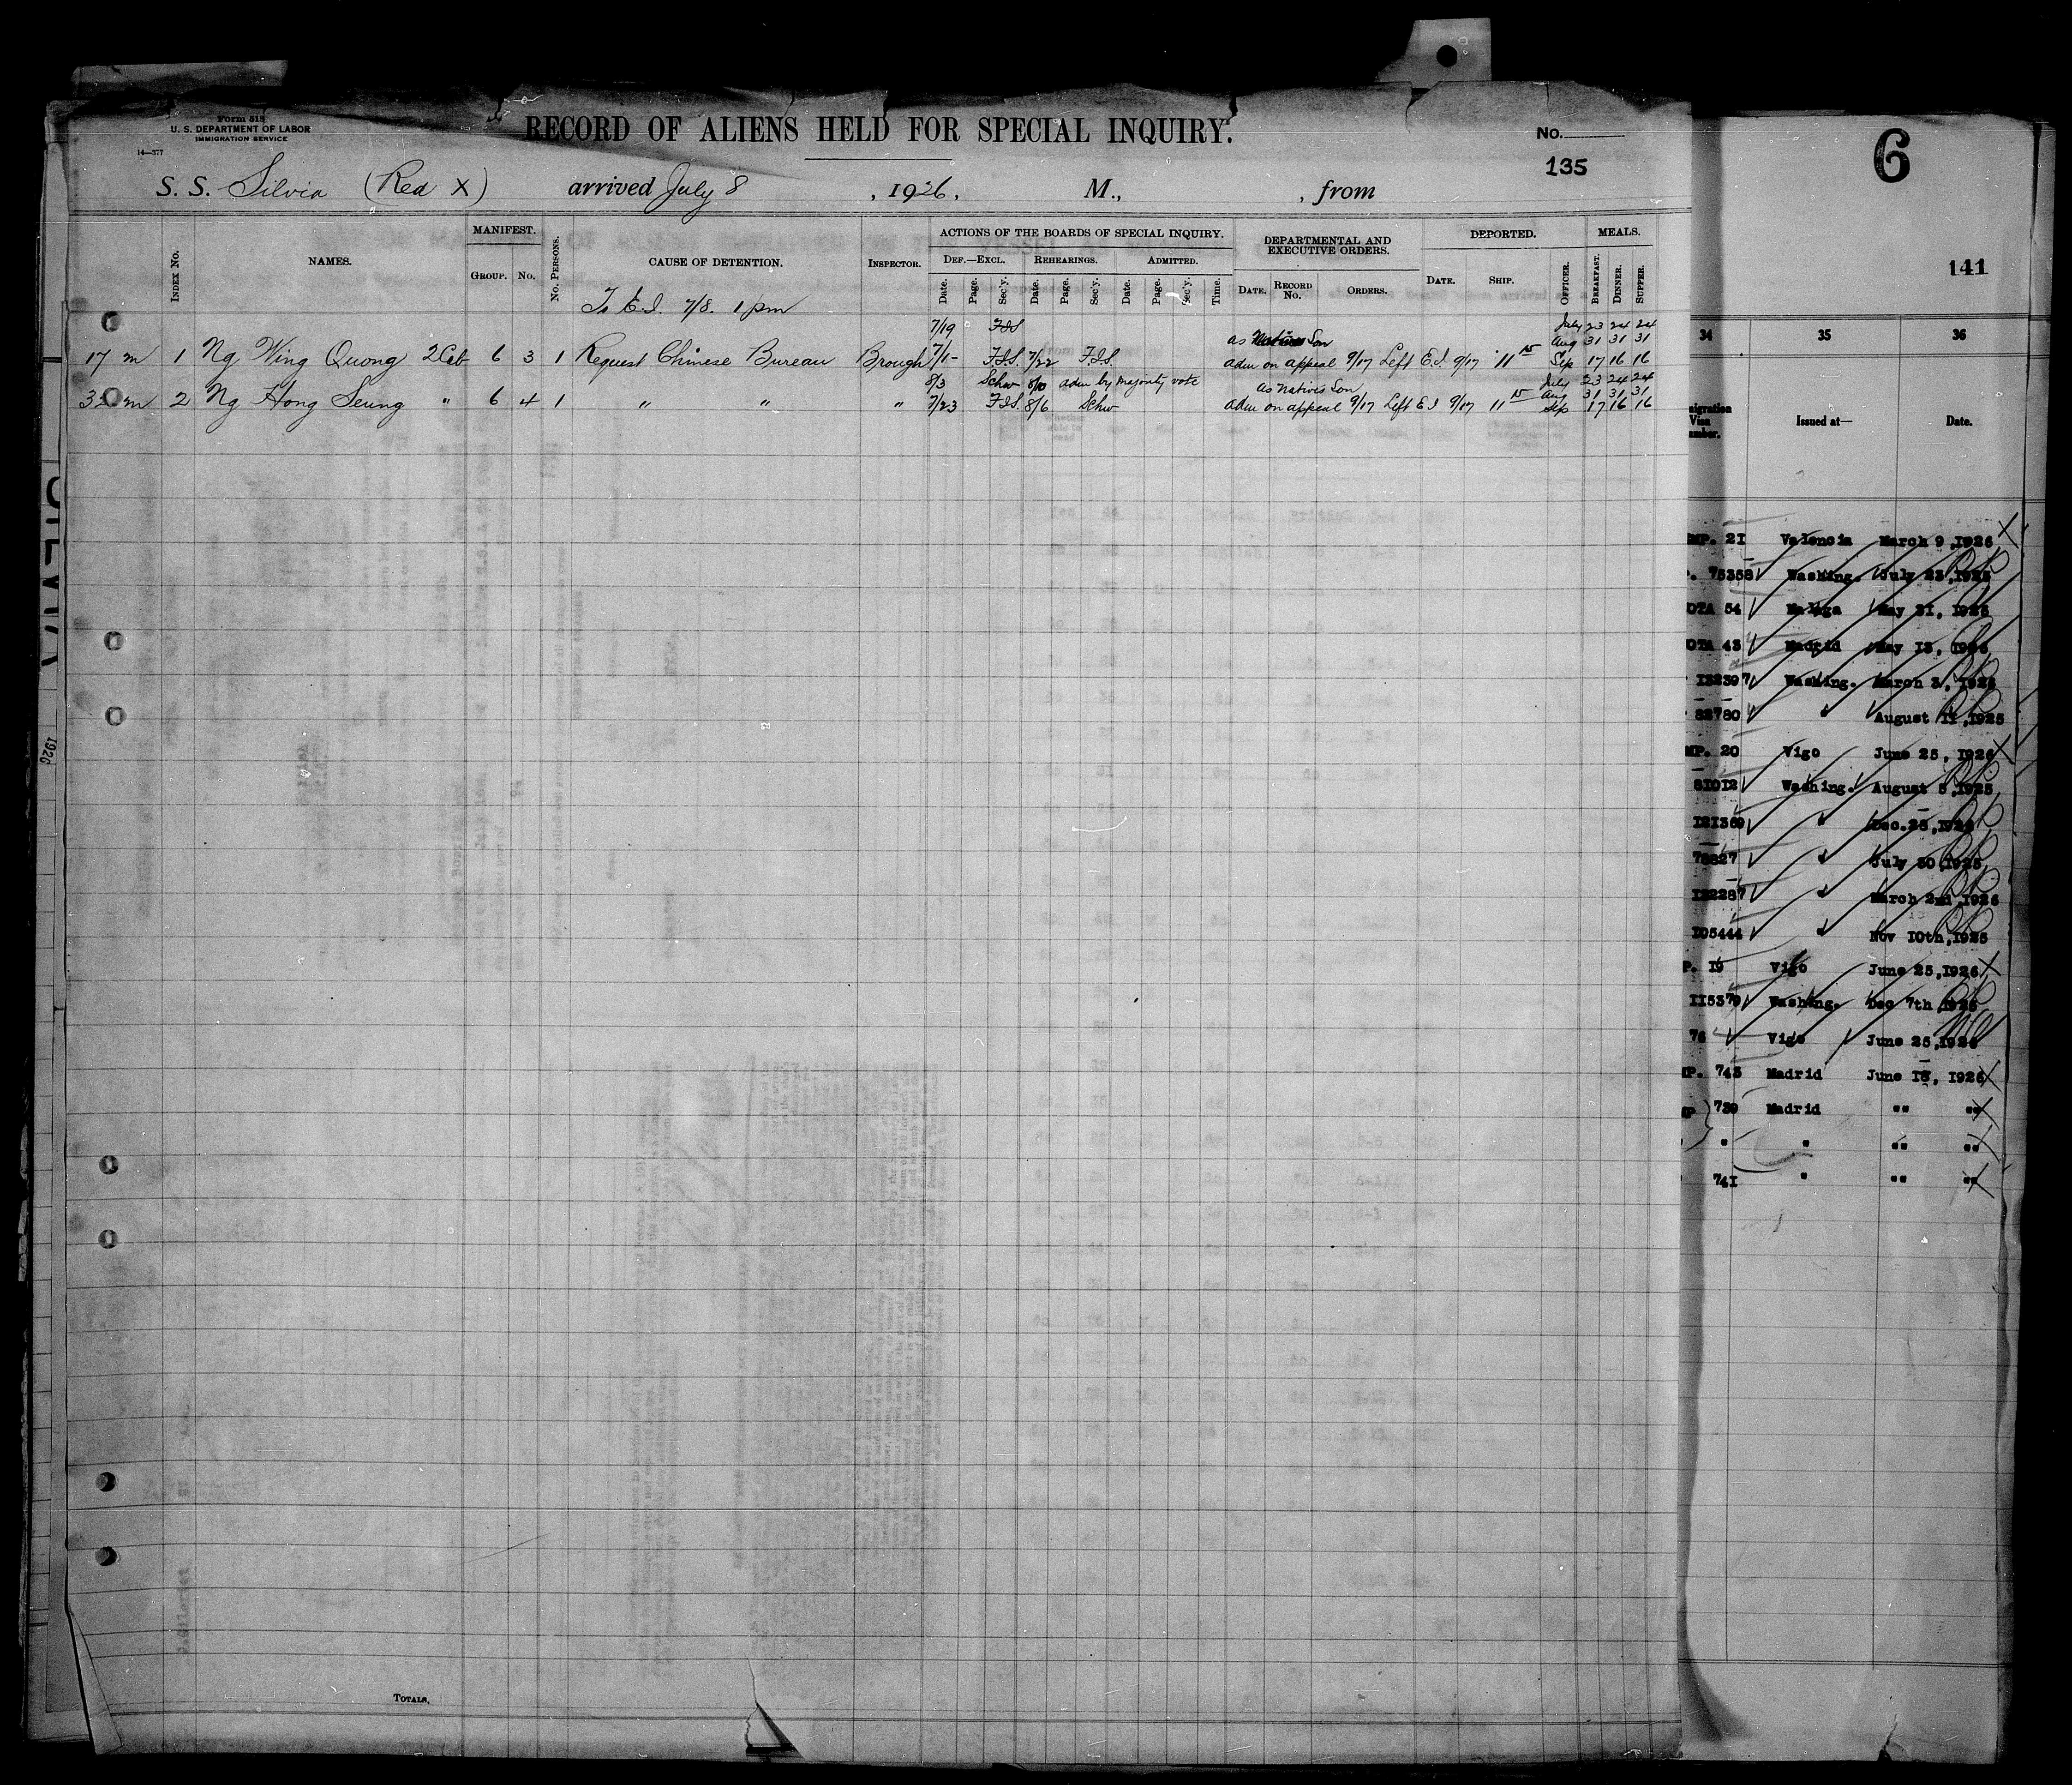 Form 513
U. S. DEPARTMENT OF LABOR
IMMIGRATION SERVICE
14—377
RECORD OF ALIENS HELD FOR SPECIAL INQUIRY.
No.
135
S. S. Silvia (Red X) arrived July 8, 1926, M., , from
INDEX No. NAMES. MANIFEST. GROUP. No. No. PERSONS. CAUSE OF DETENTION. INSPECTOR. ACTIONS OF THE BOARDS OF SPECIAL INQUIRY. DEF.—EXCL. REHEARINGS. ADMITTED. DEPARTMENTAL AND EXECUTIVE ORDERS. DEPORTED. MEALS.
Date. Page. Sec'y. Date. Page. Sec'y. Date. Page. Sec'y. Time. DATE. RECORD No. ORDERS. DATE. SHIP. OFFICER. BREAKFAST. DINNER. SUPPER.
To E.I. 7/8. 1 pm
7/19 FIS as Son July 23 24 24
Aug 31 31 31
17 m 1 Ng Wing Quong 2 Cab 6 3 1 Request Chinese Bureau Brough F.I.S. 7/22 F.I.S. adm on appeal 9/17 Left E.I. 9/17 11 15 Sep 17 16 16
8/3 Schw 8/10 adm by majority vote as Natives Son July 23 24 24
Aug 31 31 31
m 2 Ng Hong Seung " 6 4 1 " " " 7/23 F.I.S. 8/6 Schw adm on appeal 9/17 Left E I 9/17 11 15 Sep 17 16 16
TOTALS.
1926
6
141
34 35 36
Visa Issued at— Date.
MP. 21 Valencia March 9,1926 X
75358 Washing. July 23,1925
OTA 54 Malaga May 21, 1925
OTA 43 Madrid May 13, 1926
132397 Washing. March 3, 1925
82780 " August 11,1925
MP. 20 Vigo June 25, 1926 X
81012 Washing. August 5,1925
121369 " Dec.23,1925
78827 " July 30,1925
122287 " March 2nd,1926
105444 " Nov 10th,1925
P. 19 Vigo June 25,1926 X
115379 Washing. Dec 7th,1925
76 Vigo June 25,1926
MP. 743 Madrid June 18, 1926 X
MP 739 Madrid "" "" X
" " "" "" X
741 " "" "" X